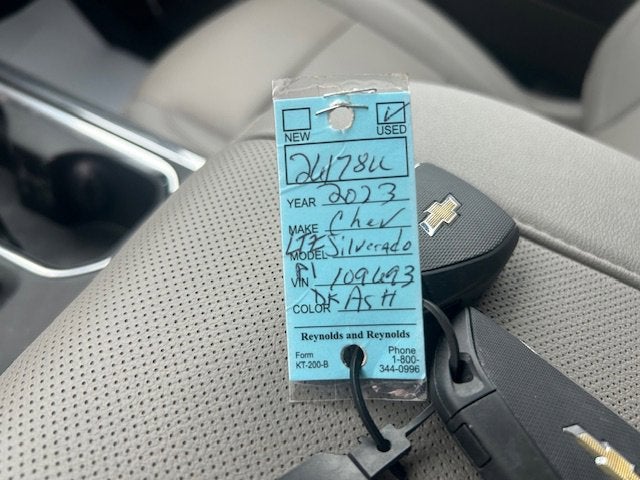 NEW USED
26178U
YEAR 2023
MAKE Chev
LTZ
MODEL Silverado
VIN 109693
COLOR DK ASH
Reynolds and Reynolds
Form
KT-200-B
Phone
1-800-
344-0996